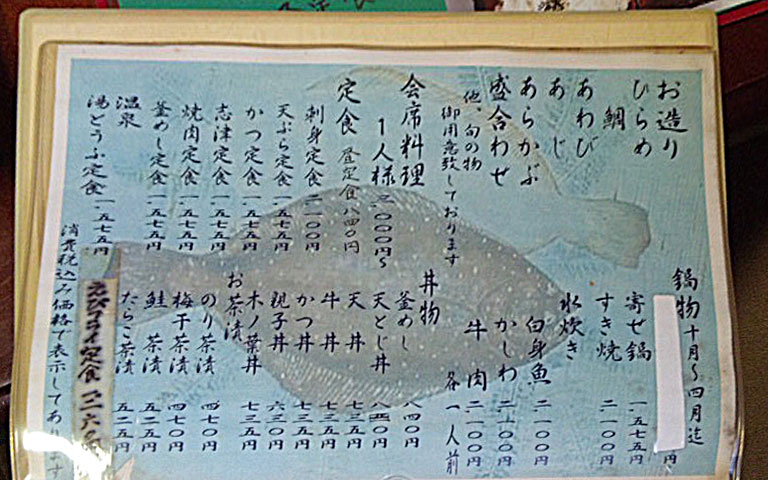 お造り
ひらめ
鯛
あわび
あじ
あらかぶ
盛合わせ
他、旬の物
御用意致しております
会席料理
1人様 三、〇〇〇円〜
定食 昼定食 八四〇円
刺身定食 二一〇〇円
天ぷら定食 一、五七五円
かつ定食 一、五七五円
志津定食 一、五七五円
焼肉定食 一、五七五円
釜めし定食 一、五七五円
温泉
湯どうふ定食 一、五七五円
鍋物 十月〜四月迄
円
寄せ鍋 一、五七五円
すき焼 二、一〇〇円
水炊き
白身魚 二、一〇〇円
かしわ 二、一〇〇円
牛肉 二、一〇〇円
各一人前
丼物
釜めし 八四〇円
天とじ丼 八四〇円
天丼 七三五円
牛丼 七三五円
かつ丼 七三五円
親子丼 六三〇円
木ノ葉丼 七三五円
お茶漬
のり茶漬 四七〇円
梅干茶漬 四七〇円
鮭茶漬 五二五円
たらこ茶漬 五二五円
えびフライ定食
消費税込み価格で表示してあります